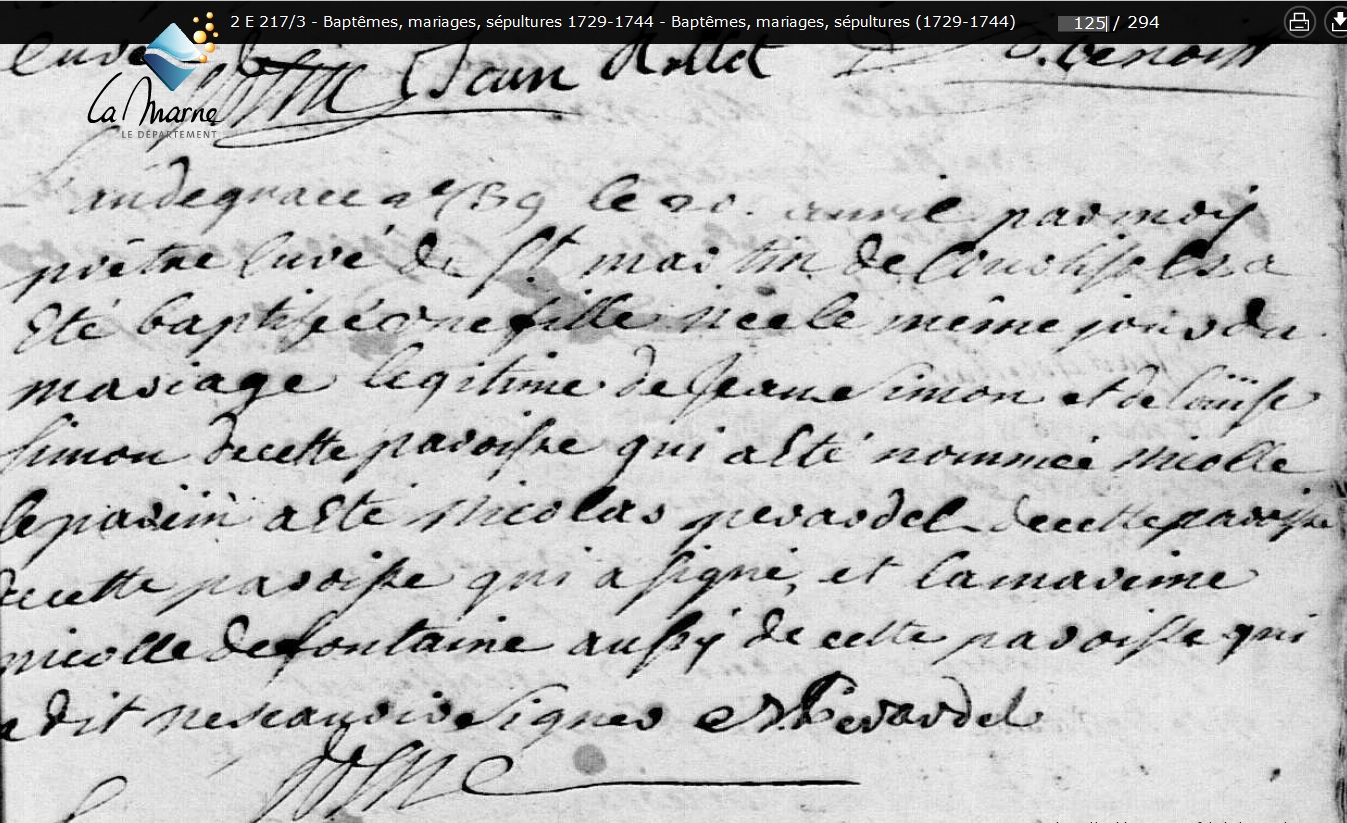 2 E 217/3 - Baptêmes, mariages, sépultures 1729-1744 - Baptêmes, mariages, sépultures (1729-1744) 125 / 294
La Marne
LE DÉPARTEMENT
Jean Rollet Benoist
L'an de grace 1739 le 20. avril par moy
prêtre curé de St martin de
Eté baptisée une fille née le même jour du
mariage legitime de Jean Simon et de Loüise
Simon de cette paroisse qui a Eté nommée nicolle
le parein a Eté nicolas perardel de cette paroisse
de cette paroisse qui a signé, et la mareine
nicolle de fontaine aussÿ de cette paroisse qui
a dit ne scauoire Signer N. Perardel